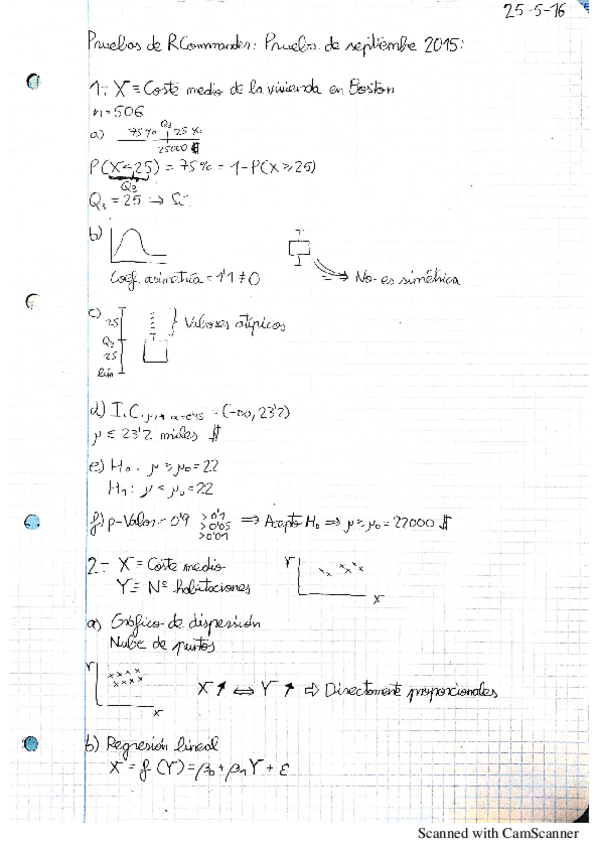 25-5-16
Pruebas de RCommander: Prueba de septiembre 2015:
1- X = Coste medio de la vivienda en Boston
n=506
a) 75% Q3 25%
25000 $
P(X<25) = 75% = 1-P(X≥25)
Q3
Q3 = 25 → Sí
b)
Coef. asimetría = 1'1 ≠ 0 → No es simétrica
c) 25 } Valores atípicos
Q3
25
d) I.C. = (-∞, 23'2)
μ ≤ 23'2 miles $
e) H0: μ ≥ μ0 = 22
H1: μ < μ0 = 22
f) p-Valor = 0'9 >0'1 >0'05 >0'01 ⇒ Acepto H0 ⇒ μ ≥ μ0 = 22000 $
2- X = Coste medio
Y ≡ Nº habitaciones
Y
X
a) Gráfico de dispersión
Nube de puntos
Y
X
X ↑ ⇔ Y ↑ ⇒ Directamente proporcionales
b) Regresión lineal
X = f(Y) = β0 + β1 Y + ε
Scanned with CamScanner